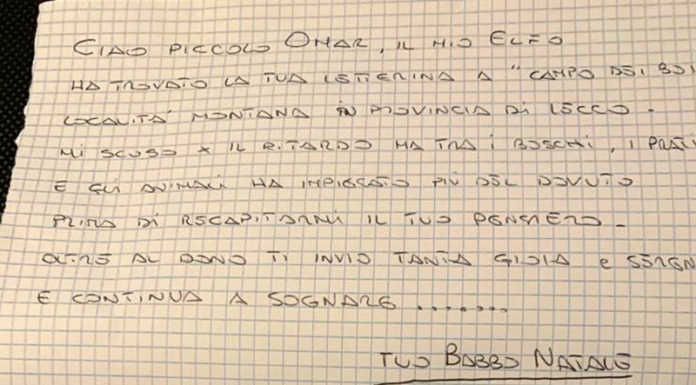 CIAO PICCOLO OMAR, IL MIO ELFO
HA TROVATO LA TUA LETTERINA A "CAMPO DEI BOI
LOCALITA' MONTANA IN PROVINCIA DI LECCO.
MI SCUSO X IL RITARDO MA TRA I BOSCHI, I PRATI
E GLI ANIMALI HA IMPIEGATO PIÙ DEL DOVUTO
PRIMA DI RECAPITARMI IL TUO PENSIERO.
OLTRE AL DONO TI INVIO TANTA GIOIA e SEREN
E CONTINUA A SOGNARE .......
TUO BABBO NATALE